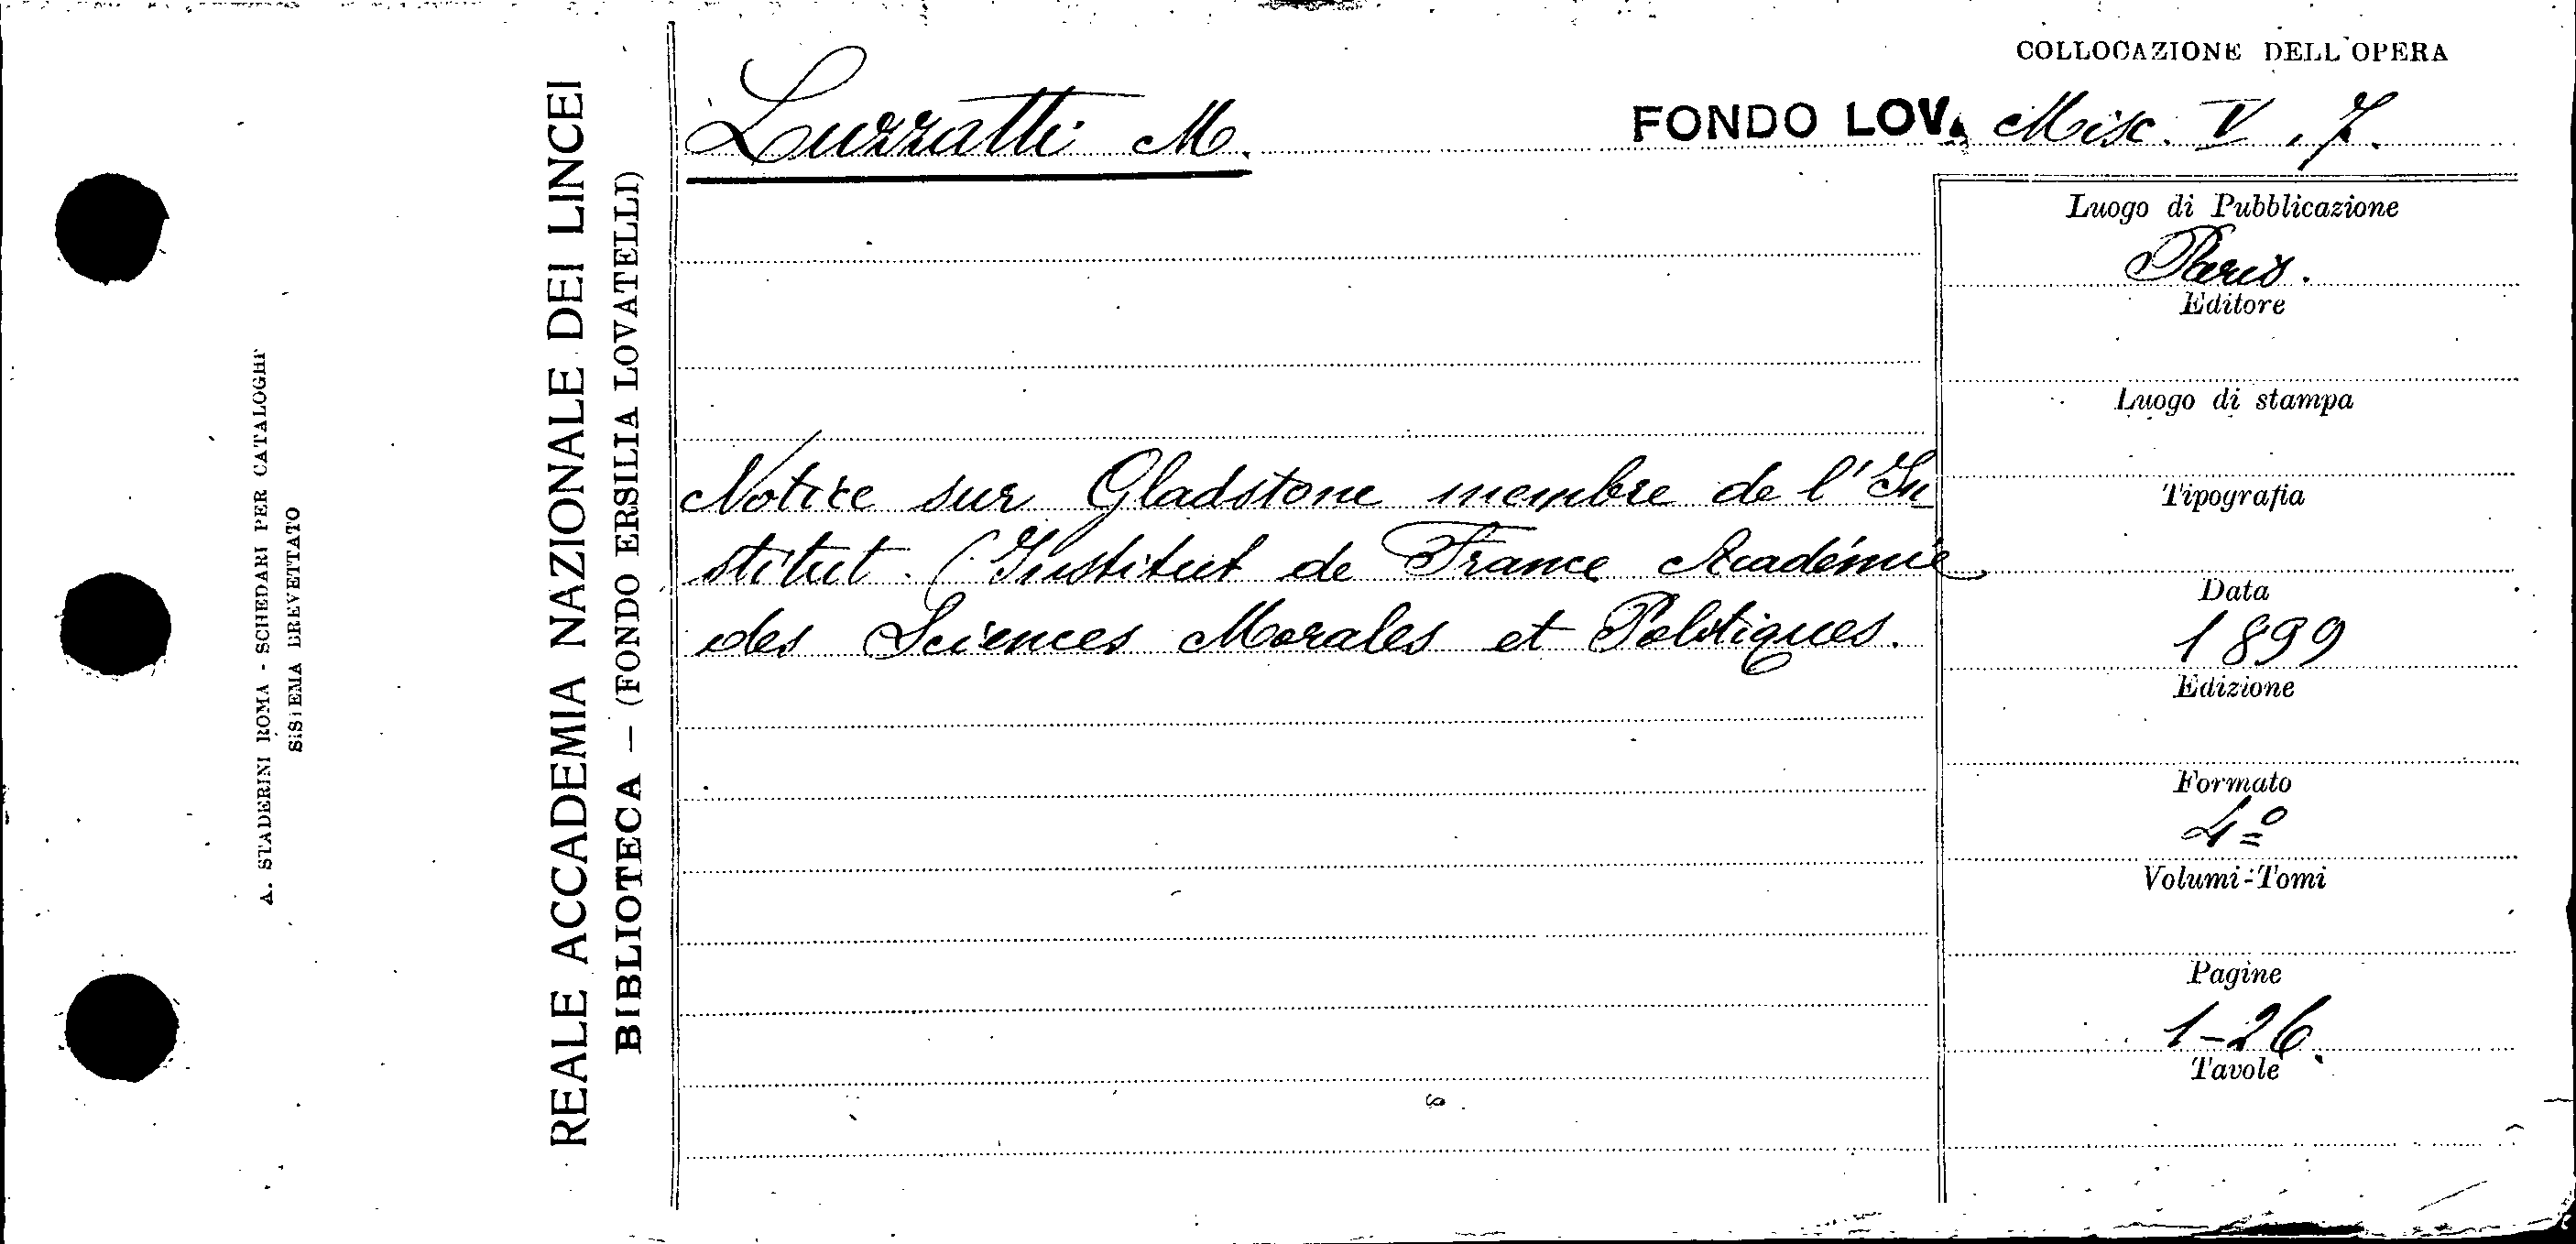 COLLOCAZIONE DELL'OPERA
Luzzatti M.
FONDO LOV. Misc. V. 7.
Luogo di Pubblicazione
Paris.
Editore
Luogo di stampa
Notice sur Gladstone membre de l'In
Tipografia
stitut. (Institut de France Académie
Data
des Sciences Morales et Politiques.
1899
Edizione
Formato
4º
Volumi-Tomi
Pagine
1-26.
Tavole
REALE ACCADEMIA NAZIONALE DEI LINCEI
BIBLIOTECA — (FONDO ERSILIA LOVATELLI)
A. STADERINI ROMA - SCHEDARI PER CATALOGHI
SISTEMA BREVETTATO